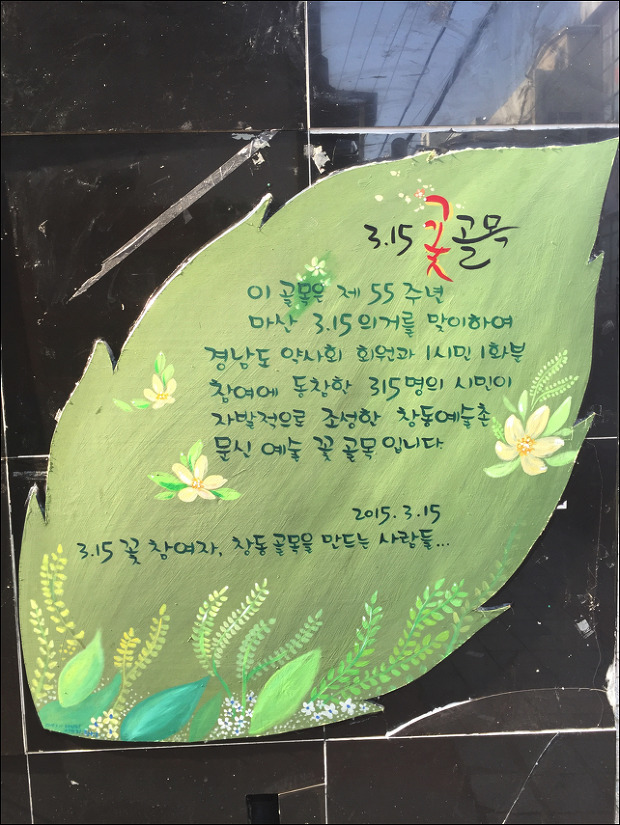 3.15 꽃골목
이 골목은 제 55 주년
마산 3.15의거를 맞이하여
경남도 약사회 회원과 1시민 1화분
참여에 동참한 315명의 시민이
자발적으로 조성한 창동예술촌
문신 예술 꽃 골목 입니다.
2015. 3. 15
3.15 꽃 참여자, 창동 골목을 만드는 사람들...